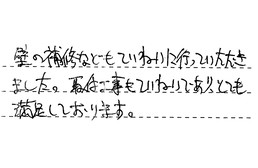 壁の補修などもていねいに行っていただき
ました。電気工事もていねいでありとても
満足しております。